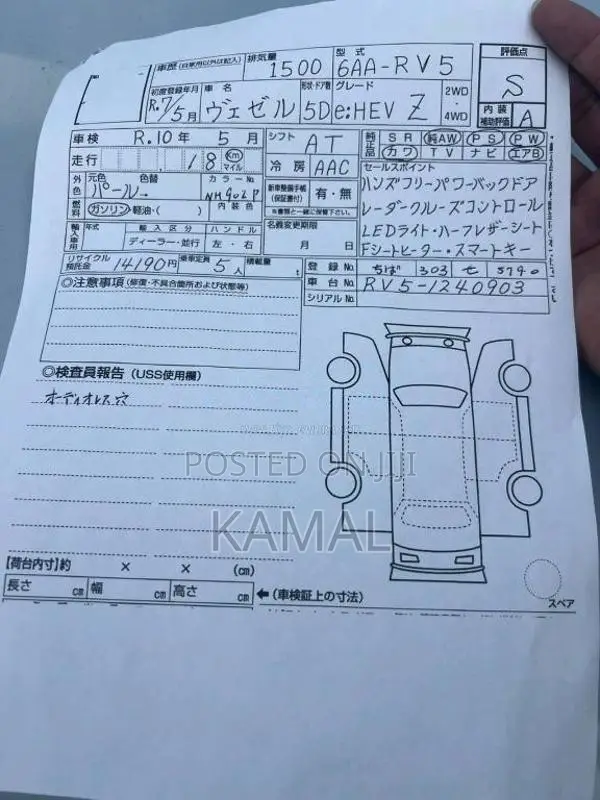 車歴(自家用以外は記入) 排気量 1500 型式 6AA-RV5 評価点 S
初度登録年月 R.7/5月 車名 ヴェゼル 形状・ドア数 5D グレード e:HEV Z 2WD・4WD 内装補助評価 A
車検 R.10年 5月 シフト AT 純正品 SR 純AW PS PW
カワ TV ナビ エアB
走行 18 Km マイル 冷房 AAC セールスポイント
外色 元色 パール 色替 → カラーNo. NH902P 新車整備手帳(保証書付) 有・無 ハンズフリーパワーバックドア
※書類と一緒に保管下さい。 レーダークルーズコントロール
燃料 ガソリン・軽油・( ) 内装色 名義変更期限 LEDライト・ハーフレザーシート
輸入車用 年式 輸入区分 ディーラー・並行 ハンドル 左・右 月 日 Fシートヒーター・スマートキー
リサイクル預託金 14190円 乗車定員 5人 積載量 t 登録No. ちば 303 せ 5790
車台No. RV5-1240903
シリアルNo.
◎注意事項(修復・不具合箇所および状態等)
◎検査員報告(USS使用欄)
オーディオレス穴
POSTED ON JIJI
KAMAL
【荷台内寸】約 × × (cm)
長さ cm 幅 cm 高さ cm ←(車検証上の寸法)
スペア